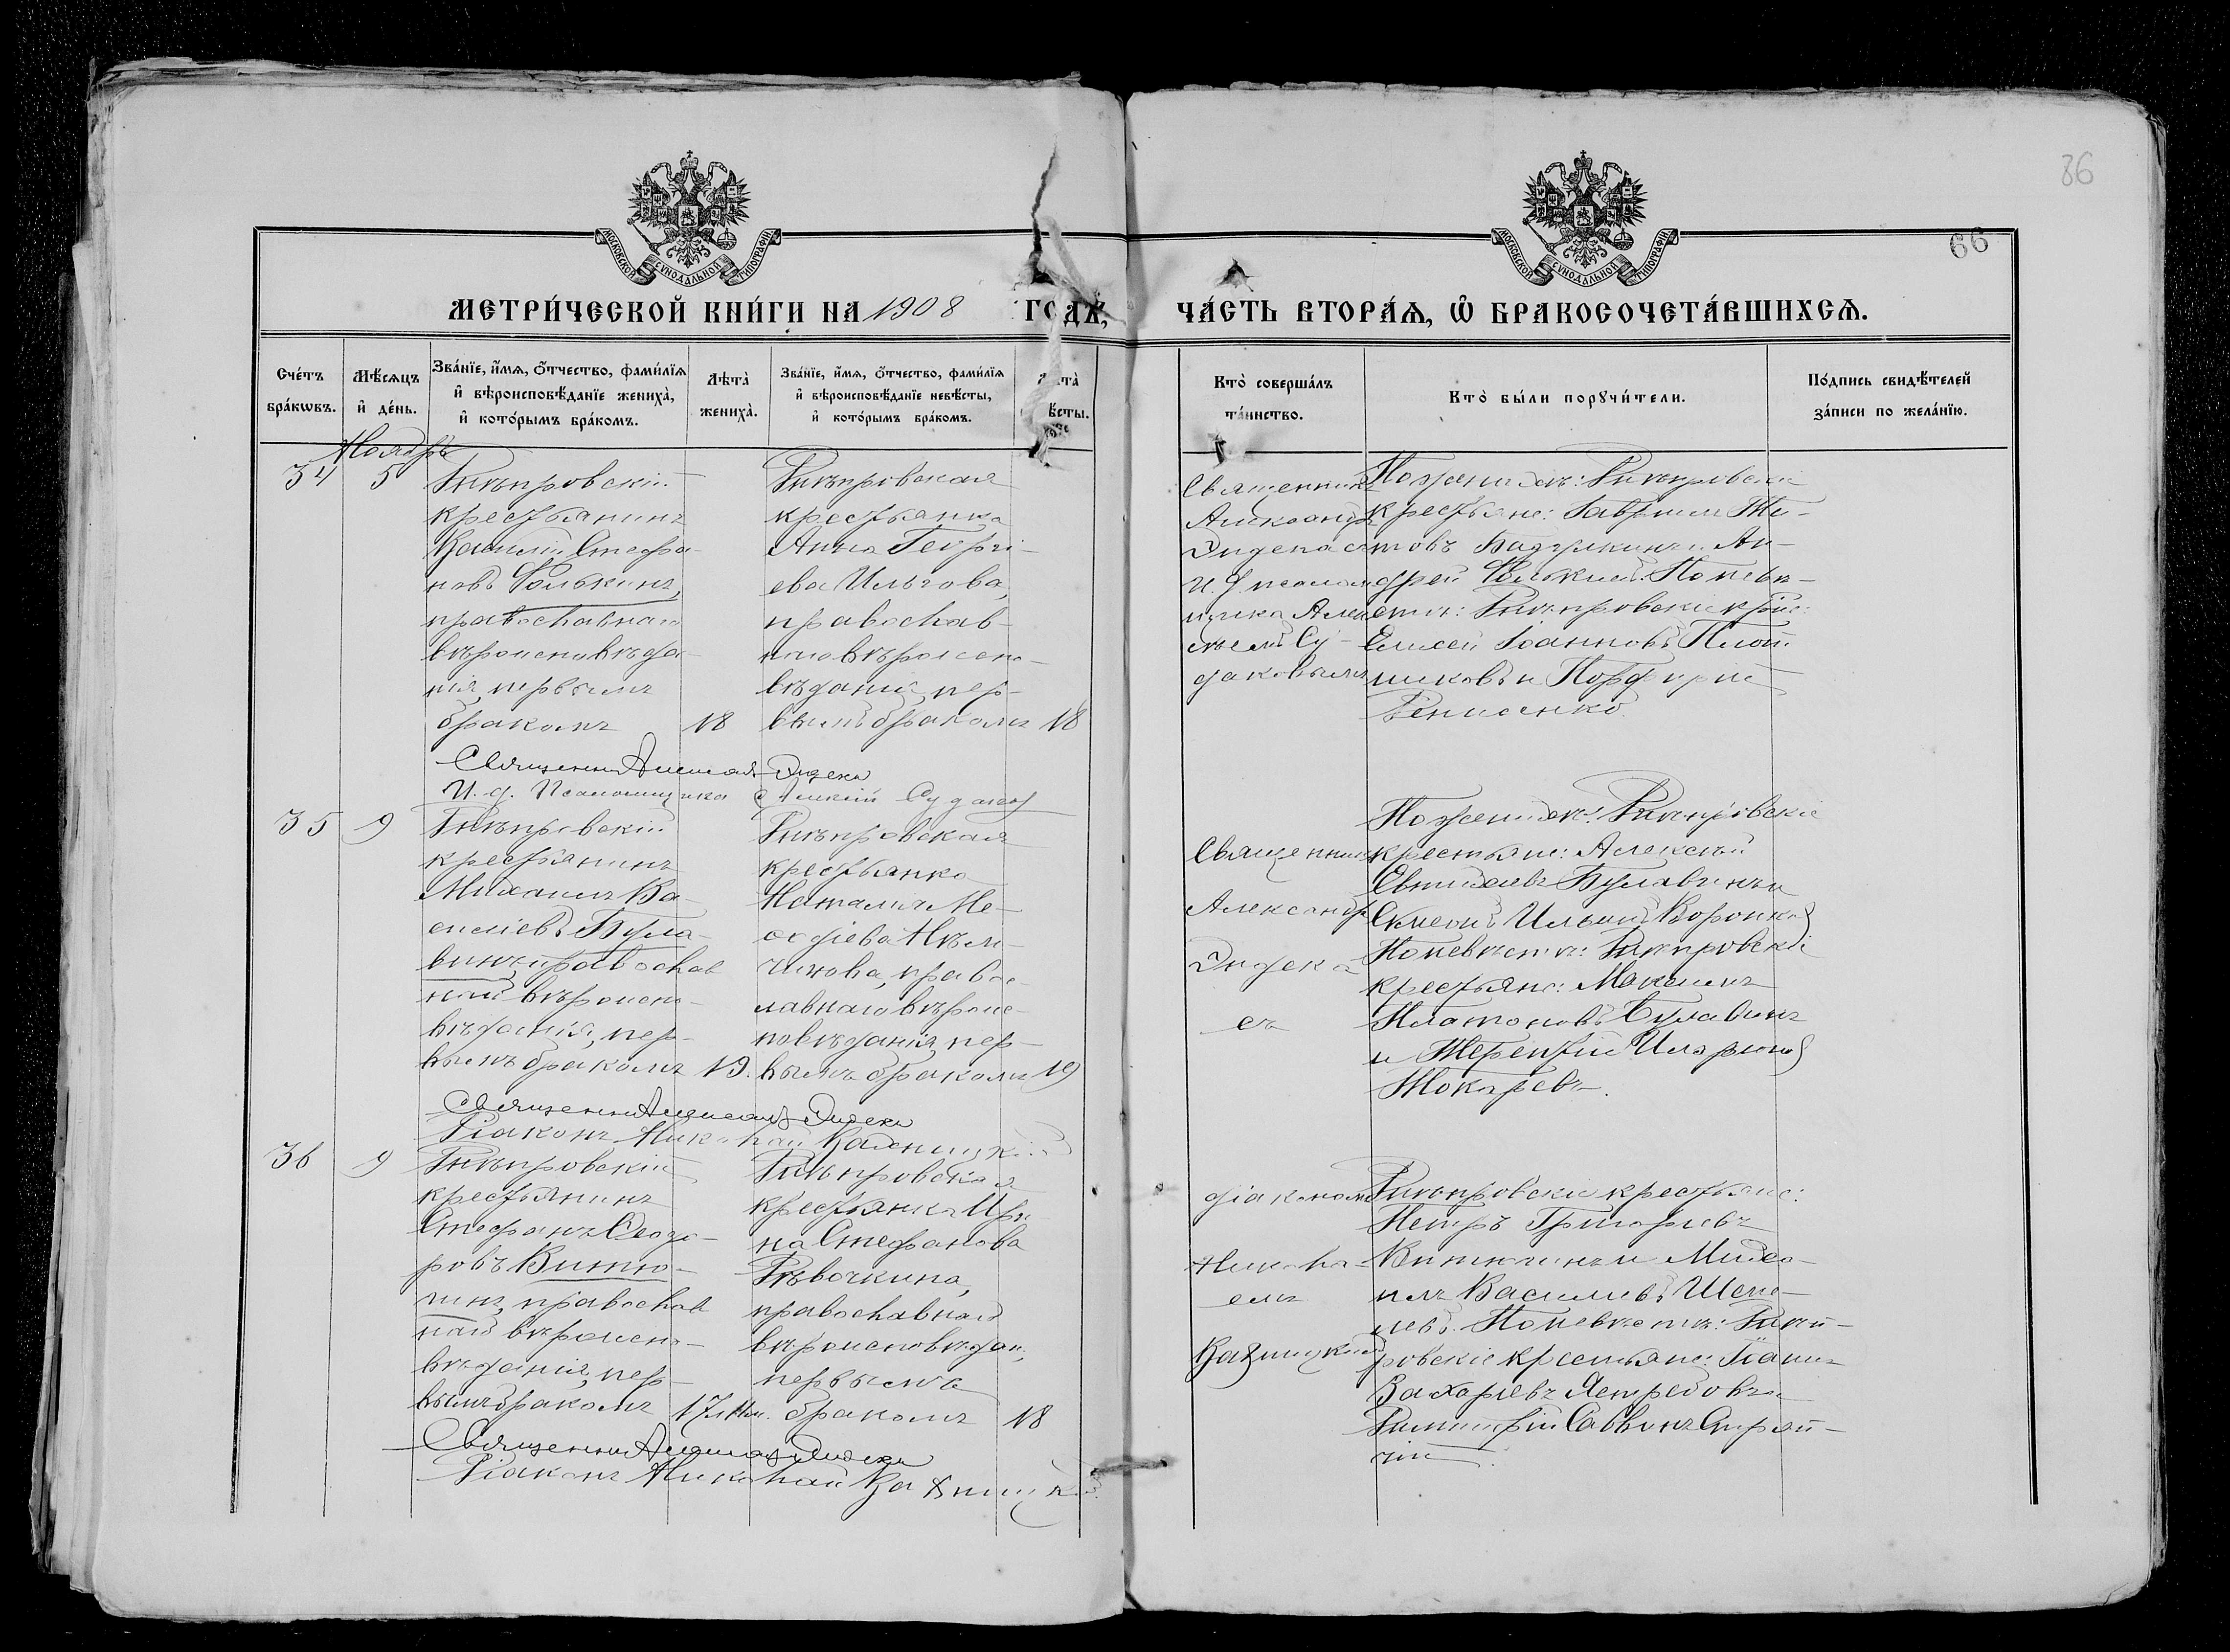 86
66
МОСКОВСКОЙ СѴНОДАЛЬНОЙ ТИПОГРАФІИ
МОСКОВСКОЙ СѴНОДАЛЬНОЙ ТИПОГРАФІИ
МЕТРИ́ЧЕСКОЙ КНИ́ГИ НА 1908 ГОДꙊ̀,
ЧА́СТЬ ВТОРА́Ѧ, Ѽ БРАКОСОЧЕТА́ВШИХСѦ.
Сче́тъ
бра́кѡвъ.
Мѣ́сѧцъ
и҆ де́нь.
Зва́нїе, и҆́мѧ, ѻ҆́тчество, фами́лїѧ
и҆ вѣроисповѣ́данїе жениха̀,
и҆ кото́рымъ бра́комъ.
Лѣта̀
жениха̀.
Зва́нїе, и҆́мѧ, ѻ҆́тчество, фами́лїѧ
и҆ вѣроисповѣ́данїе невѣ́сты,
и҆ кото́рымъ бра́комъ.
Кто̀ соверша́лъ
та́инство.
Кто̀ бы́ли порꙋчи́тели.
По́дпись свидѣ́телей
за́писи по жела́нїю.
Ноябрь
34
5
Днѣпровскій
крестьянинъ
Василій Стефа-
новъ Фалькинъ,
православнаго
вѣроисповѣда-
нія, первымъ
бракомъ
18
Днѣпровская
крестьянка
Анна Георгі-
ева Ильгова,
православ-
наго вѣроиспо-
вѣданія, пер-
вымъ бракомъ
18
Священникъ
Александръ
Дидека съ
и. д. псаломщика
Алексѣемъ Су-
даковымъ
По женихѣ: Днѣпровскіе
крестьяне: Гавріилъ Ти-
товъ и Ан-
дрей Фалькинъ. По невѣ-
стѣ: Днѣпровскіе крес:
Елисей Іоанновъ Плот-
никовъ и Порфирій
Денисенко.
Священникъ Александръ Дидека
И. д. Псаломщика Алексій Судаковъ
35
9
Днѣпровскій
крестьянинъ
Михаилъ Ва-
силіевъ Була-
винъ, православ
наго вѣроиспо-
вѣданія, пер-
вымъ бракомъ
19.
Днѣпровская
крестьянка
Наталія Ме-
ѳодіева Нѣм-
чинова, правос-
лавнаго вѣроис-
повѣданія, пер-
вымъ бракомъ
19
Священникъ
Александръ
Дидека
съ
По женихѣ: Днѣпровскіе
крестьяне: Алексѣй
Евѳиміевъ Булавинъ и
Симеонъ Ильинъ Воронковъ
По невѣстѣ: Днѣпровскіе
крестьяне: Максимъ
Платоновъ Булавинъ
и Терентій Иларіоновъ
Токаревъ.
Священникъ Александръ Дидека
Діаконъ Николай
36
9
Днѣпровскій
крестьянинъ
Стефанъ Ѳеодо-
ровъ Витю-
гинъ, православ
наго вѣроиспо-
вѣданія, пер-
вымъ бракомъ
17
Днѣпровская
крестьянка Ири-
на Стефанова
Дѣвочкина,
православнаго
вѣроисповѣдан,
первымъ
бракомъ
18
діакономъ
Никола-
емъ
Днѣпровскіе крестьяне:
Петръ Григорьевъ
и Миха-
илъ Васильевъ
По невѣстѣ: Днѣп-
ровскіе крестьяне: Даніилъ
Захаріевъ Ястребовъ и
Димитрій Саввинъ
Священникъ Александръ Дидека
Діаконъ Николай